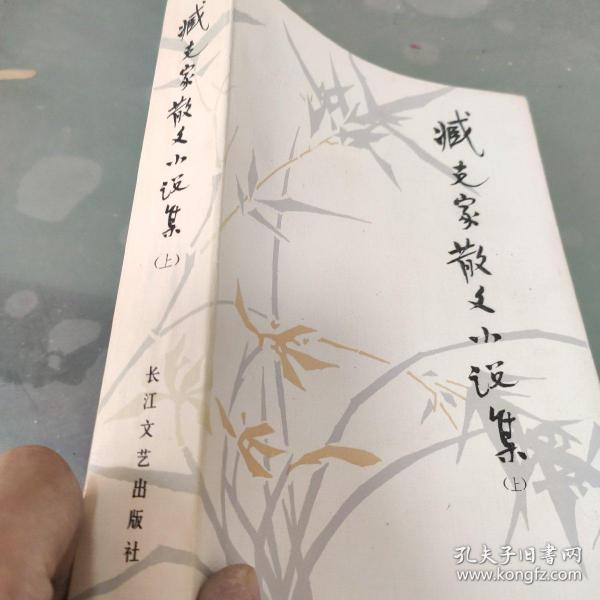 臧克家散文小说集
（上）
长江文艺出版社
臧克家散文小说集
（上）
孔夫子旧书网
www.kongfz.com